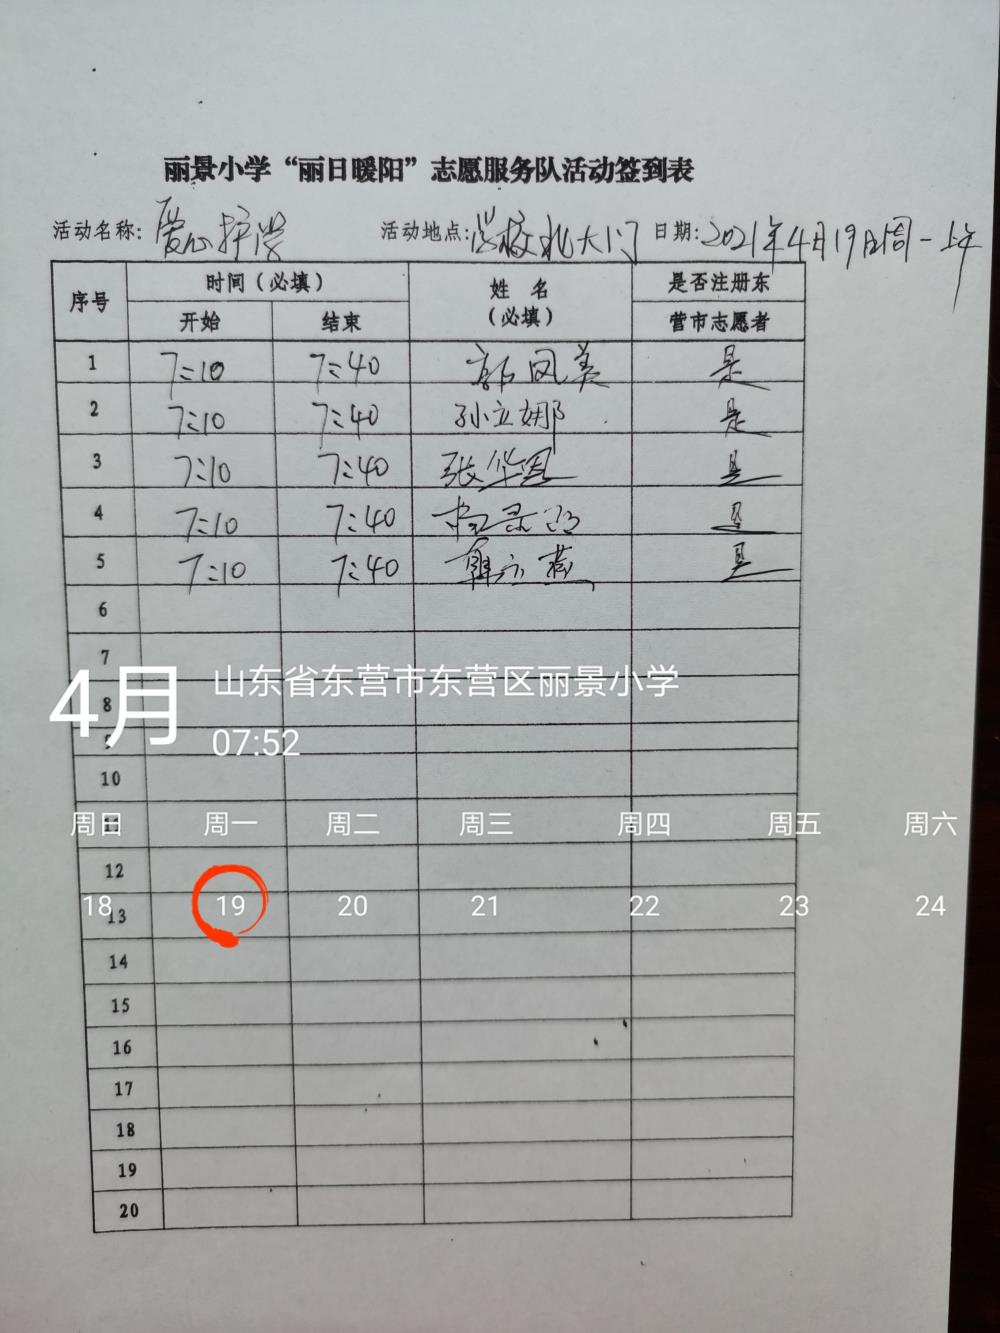 丽景小学“丽日暖阳”志愿服务队活动签到表
活动名称: 爱心护学 活动地点: 学校北大门 日期: 2021年4月19日周一上午
序号 时间(必填) 姓 名 (必填) 是否注册东营市志愿者
开始 结束
1 7:10 7:40 郭凤美 是
2 7:10 7:40 孙立娜 是
3 7:10 7:40 张华恩 是
4 7:10 7:40 是
5 7:10 7:40 韩立燕 是
6
7
4月 山东省东营市东营区丽景小学
8
07:52
9
10
11
周日 周一 周二 周三 周四 周五 周六
12
18 19 20 21 22 23 24
13
14
15
16
17
18
19
20